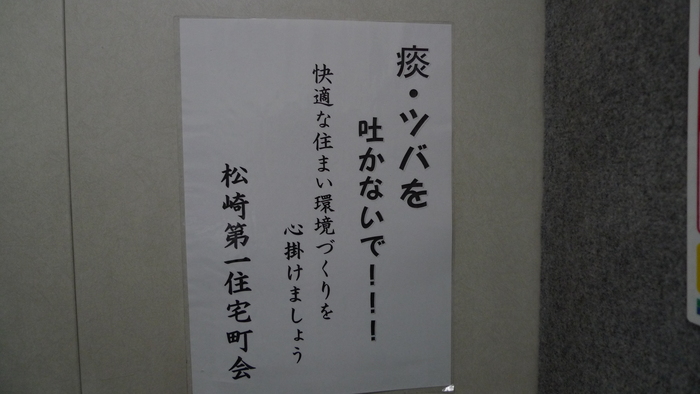 痰・ツバを
吐かないで!!!
快適な住まい環境づくりを
心掛けましょう
松崎第一住宅町会